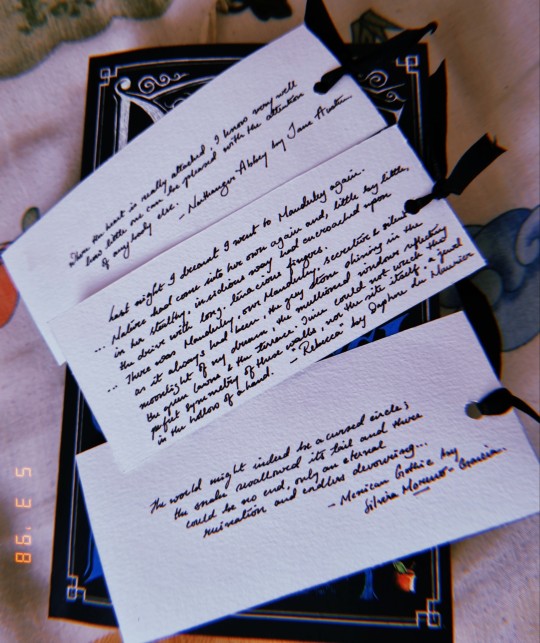 When the heart is really attached, I know very well
how little one can be pleased with the attention
of any body else.
- Northanger Abbey by Jane Austen
Last night I dreamt I went to Manderley again.
... Nature had come into her own again and, little by little,
in her stealthy, insidious way had encroached upon
the drive with long, tenacious fingers.
... There was Manderley, our Manderley, secretive & silent
as it always had been, the grey stone shining in the
moonlight of my dream, the mullioned windows reflecting
the green lawns & the terrace. Time could not wreck the
perfect symmetry of those walls, nor the site itself, a jewel
in the hollow of a hand.
- "Rebecca" by Daphne du Maurier
The world might indeed be a cursed circle;
the snake swallowed its tail and there
could be no end, only an eternal
ruination and endless devouring...
- Mexican Gothic by
Silvia Moreno-Garcia.
5 3 '98